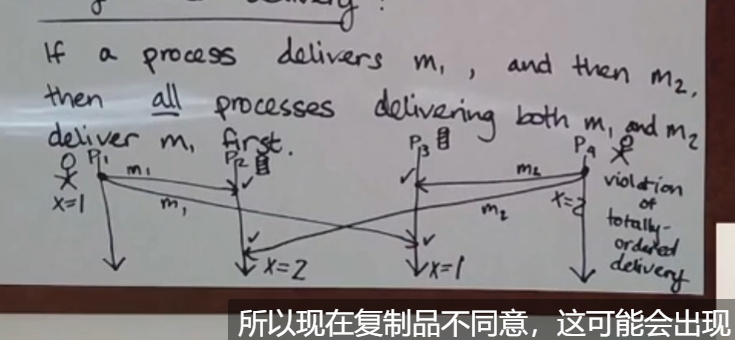 delivery:
If a process delivers m₁, and then m₂,
then all processes delivering both m₁ and m₂
deliver m₁ first.
P₁ P₂ P₃ P₄
m₁ m₂
m₁ m₂
x=1 x=2
x=2 x=1
violation
of
totally-
ordered
delivery
所以现在复制品不同意，这可能会出现